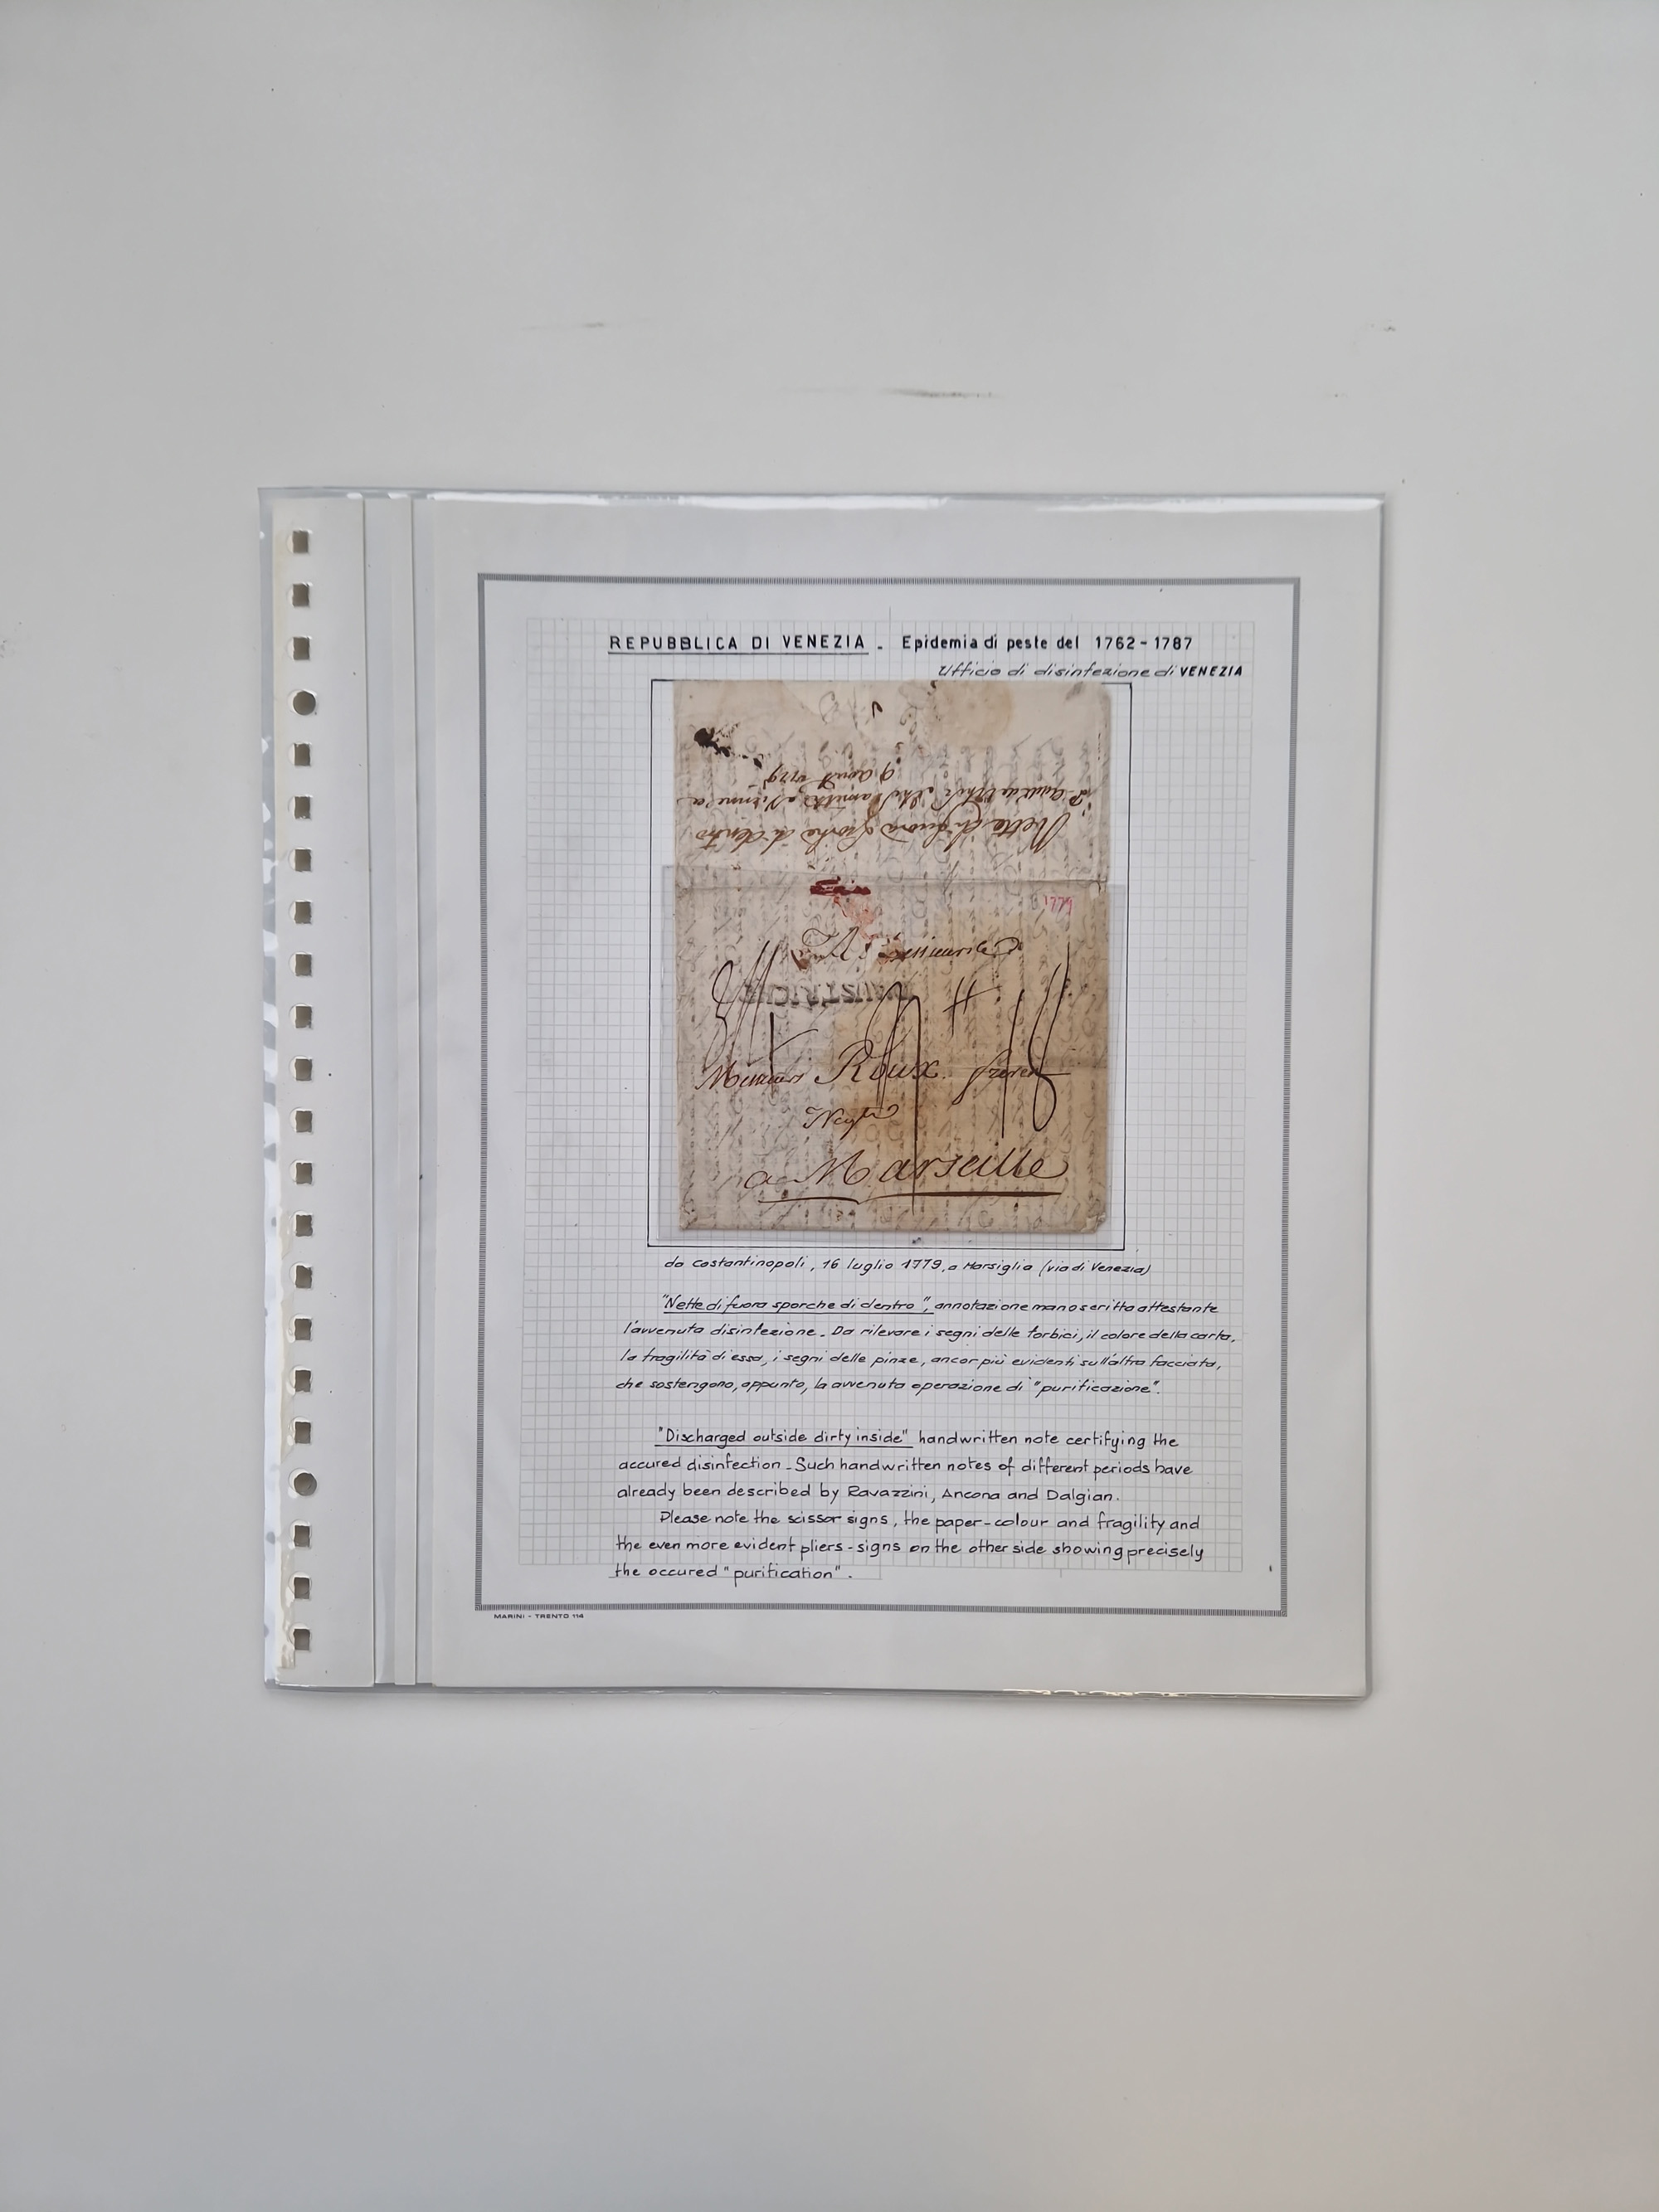 REPUBBLICA DI VENEZIA - Epidemia di peste del 1762-1787
Ufficio di disinfezione di VENEZIA
9 aoust 1779
Nette di fuora sporche di dentro
1779
D'AUTRICHE
Messieurs Roux freres
Negts
a Marseille
da Costantinopoli, 16 luglio 1779, a Marsiglia (via di Venezia)
"Nette di fuora sporche di dentro", annotazione manoscritta attestante
l'avvenuta disinfezione. Da rilevare i segni delle forbici, il colore della carta,
la fragilità di essa, i segni delle pinze, ancor più evidenti sull'altra facciata,
che sostengono, appunto, la avvenuta operazione di "purificazione".
"Discharged outside dirty inside" handwritten note certifying the
accured disinfection - Such handwritten notes of different periods have
already been described by Ravazzini, Ancona and Dalgian.
Please note the scissor signs, the paper-colour and fragility and
the even more evident pliers-signs on the other side showing precisely
the occured "purification".
MARINI - TRENTO 114